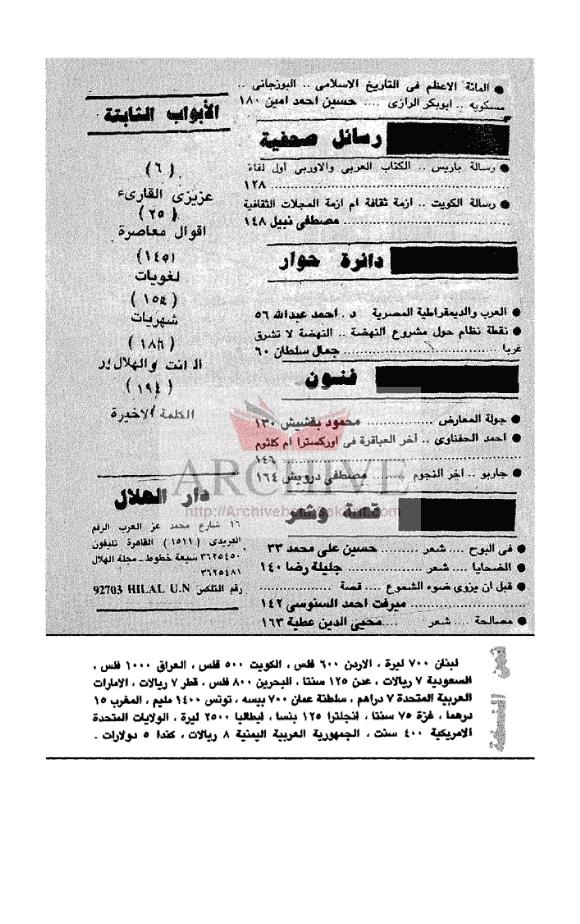 ● المائة الاعظم فى التاريخ الاسلامى .. البوزجانى ..
مسكويه .. ابوبكر الرازى .... حسين احمد امين ١٨٠
رسائل صحفية
● رسالة باريس .. الكتاب العربى والاوربى أول لقاء
١٢٨
● رسالة الكويت .. ازمة ثقافة ام ازمة المجلات الثقافية
مصطفى نبيل ١٤٨
دائرة حوار
● العرب والديمقراطية المصرية د . احمد عبدالله ٥٦
● نقطة نظام حول مشروع النهضة .. النهضة لا تشرق
غربا ... جمال سلطان ٦٠
فنون
● جولة المعارض ... محمود بقشيش ١٣٠
● احمد الحفناوى .. آخر العباقرة فى اوركسترا ام كلثوم
١٤٦
● جاربو .. اخر النجوم ... مصطفى درويش ١٦٤
قصة وشعر
● فى البوح .... شعر ... حسين على محمد ٣٣
● الضحايا .... شعر ... جليلة رضا ١٤٠
● قبل ان يزوى ضوء الشموع .... قصة ...
ميرفت احمد السنوسى ١٤٢
● مصالحة .... شعر ... محيى الدين عطية ١٦٣
الأبواب الثابتة
(٦)
عزيزى القارىء
(٢٥)
اقوال معاصرة
لغويات
شهريات
(١٨٦)
انت والهلال
(١٩٤)
الكلمة الاخيرة
دار الهلال
١٦ شارع محمد عز العرب الرقم
البريدى (١١٥١١) القاهرة تليفون
٣٦٢٥٤٥٠ سبعة خطوط ـ مجلة الهلال
٣٦٢٥٤٨١
رقم التلكس 92703 HILAL U.N
ARCHIVE
ثمن النسخة
لبنان ٧٠٠ ليرة ، الاردن ٦٠٠ فلس ، الكويت ٥٠٠ فلس ، العراق ١٠٠٠ فلس ،
السعودية ٧ ريالات ، عدن ١٢٥ سنتا ، البحرين ٨٠٠ فلس ، قطر ٧ ريالات ، الامارات
العربية المتحدة ٧ دراهم ، سلطنة عمان ٧٠٠ بيسه ، تونس ١٤٠٠ مليم ، المغرب ١٥
درهما ، غزة ٧٥ سنتا ، انجلترا ١٢٥ بنسا ، ايطاليا ٢٥٠٠ ليرة ، الولايات المتحدة
الامريكية ٤٠٠ سنت ، الجمهورية العربية اليمنية ٨ ريالات ، كندا ٥ دولارات .